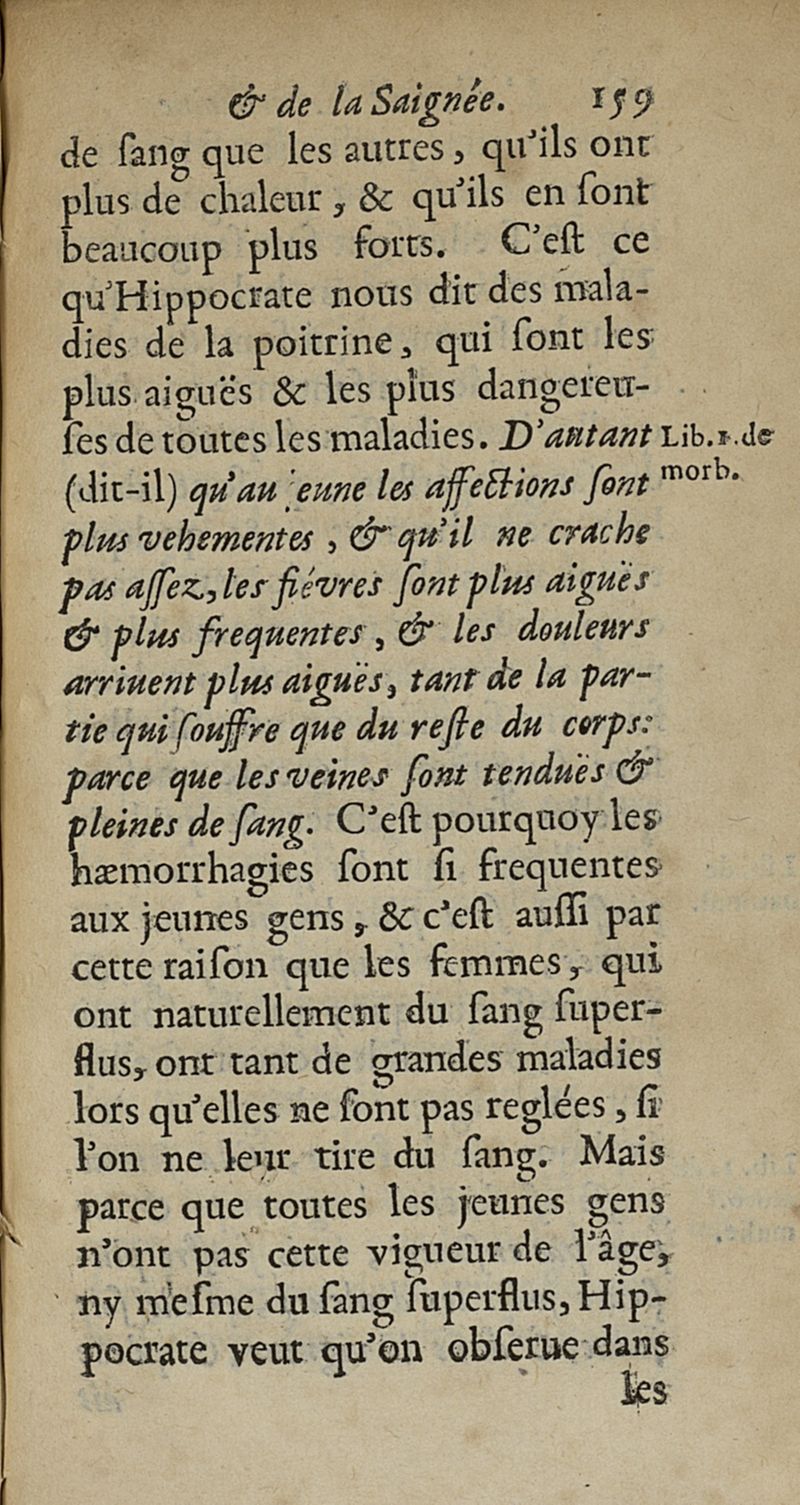 & de la Saignée. 159
de ſang que les autres, qu'ils ont
plus de chaleur, & qu'ils en ſont
beaucoup plus forts. C'eſt ce
qu'Hippocrate nous dit des mala-
dies de la poitrine, qui ſont les
plus aiguës & les plus dangereu-
ſes de toutes les maladies. D'autant
Lib. 1. de morb.
(dit-il) qu'au jeune les affections ſont
plus vehementes, & qu'il ne crache
pas aſſez, les fiévres ſont plus aiguës
& plus frequentes, & les douleurs
arriuent plus aiguës, tant de la par-
tie qui ſouffre que du reſte du corps:
parce que les veines ſont tenduës &
pleines de ſang. C'eſt pourquoy les
hæmorrhagies ſont ſi frequentes
aux jeunes gens, & c'eſt auſſi par
cette raiſon que les femmes, qui
ont naturellement du ſang ſuper-
flus, ont tant de grandes maladies
lors qu'elles ne ſont pas reglées, ſi
l'on ne leur tire du ſang. Mais
parce que toutes les jeunes gens
n'ont pas cette vigueur de l'âge,
ny meſme du ſang ſuperflus, Hip-
pocrate veut qu'on obſerue dans
les